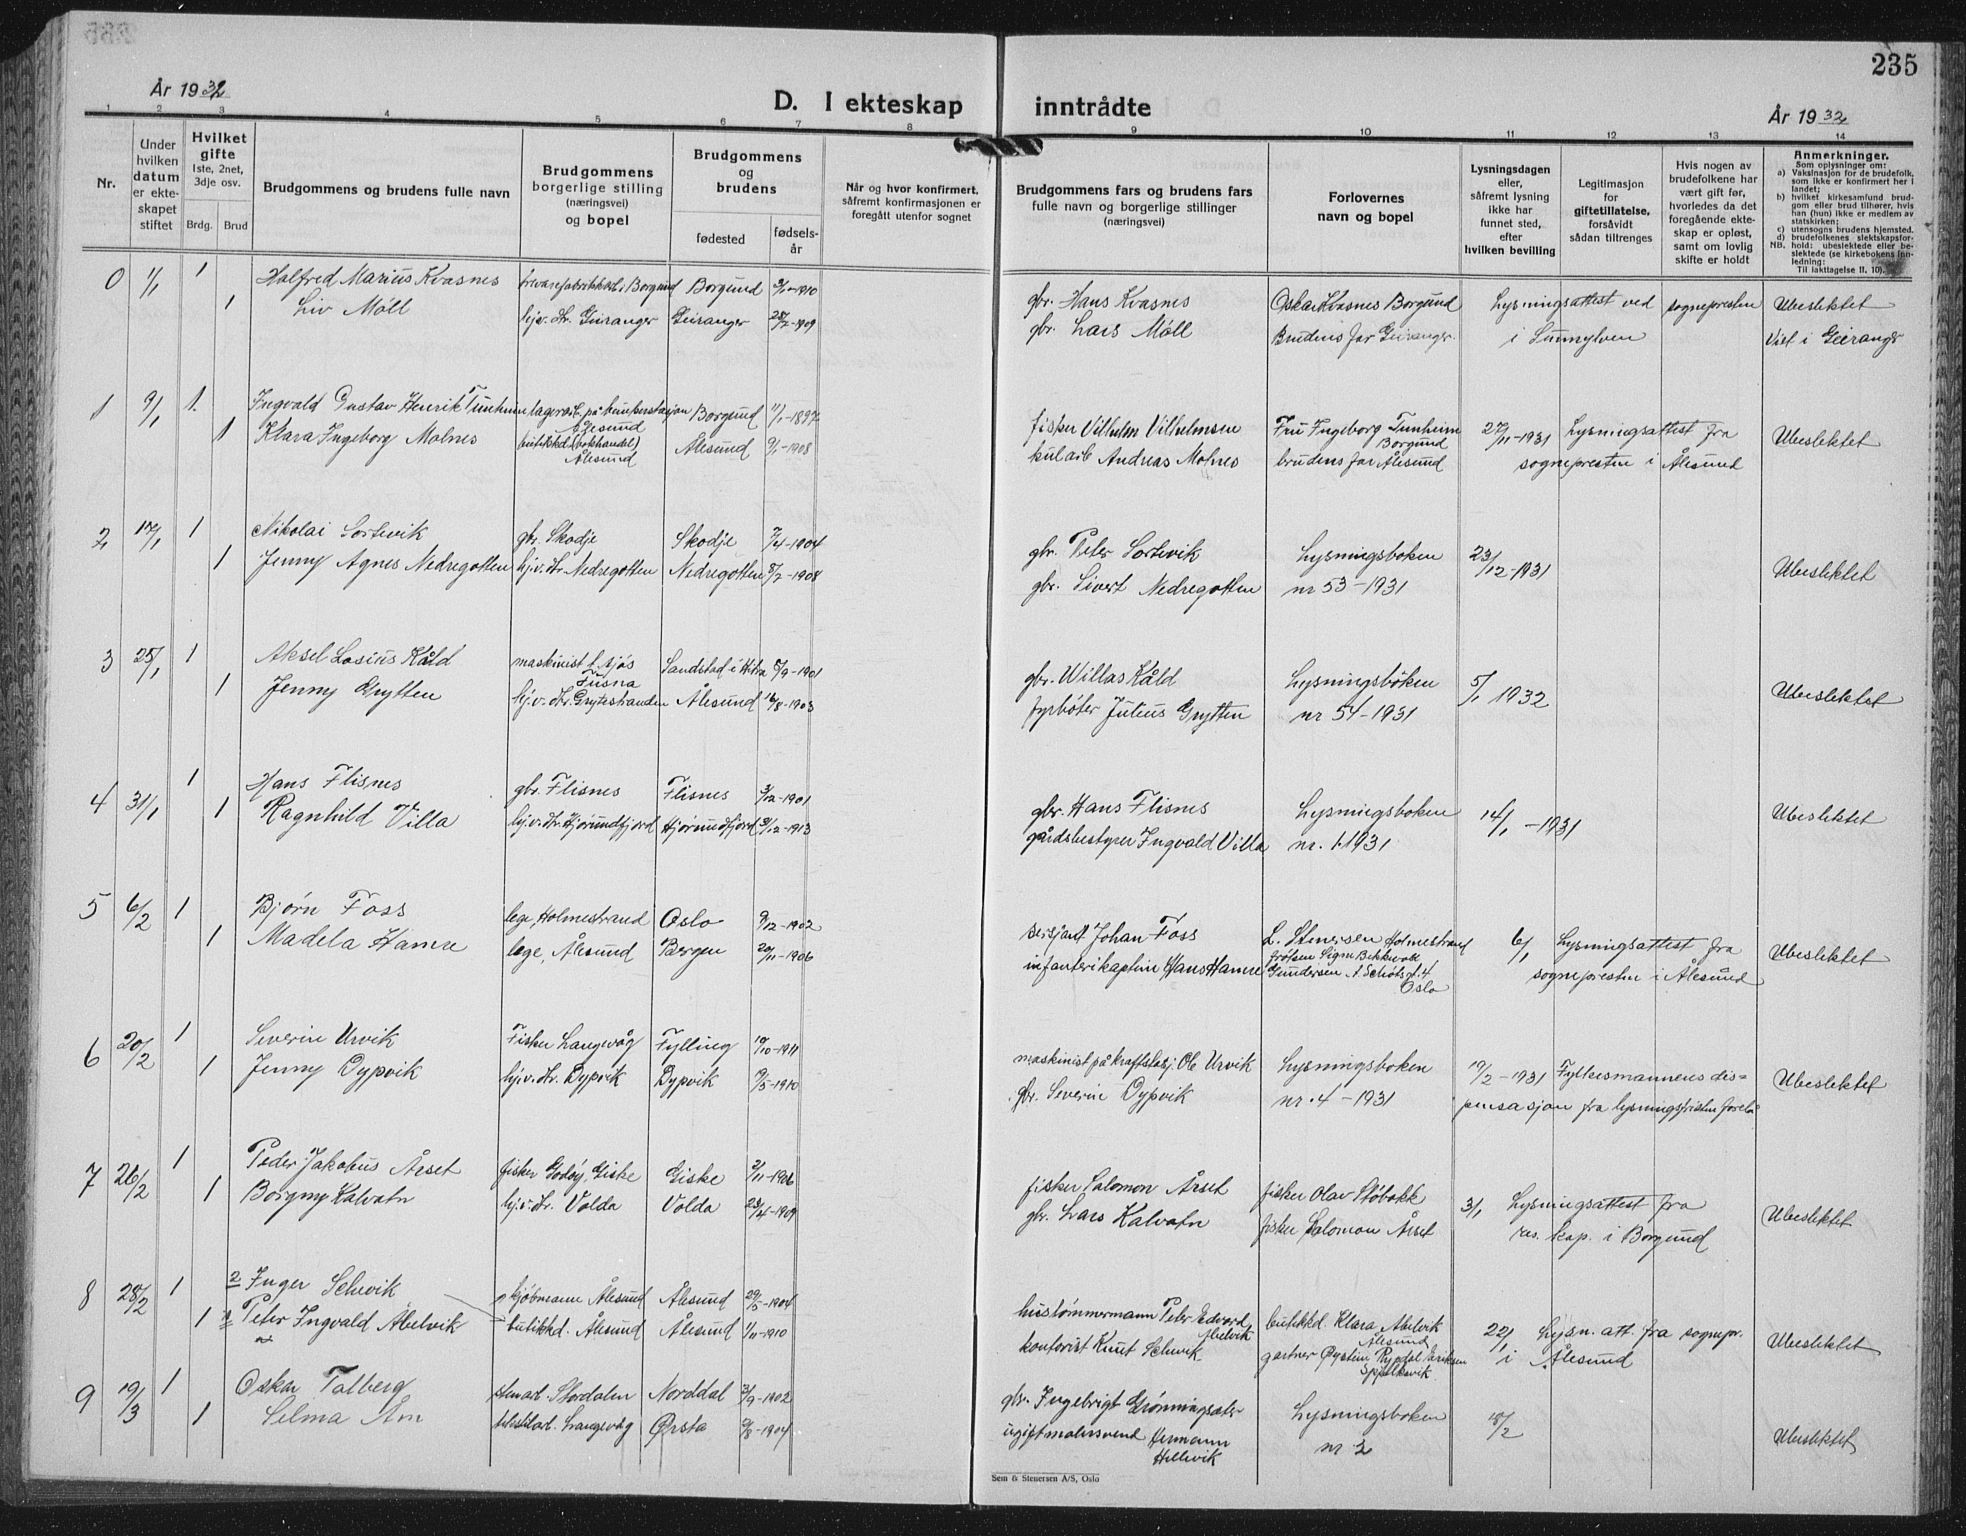 235
År 1932
D. I ekteskap inntrådte
År 1932
1 2 3 4 5 6 7 8 9 10 11 12 13 14
Nr.
Under hvilken datum er ekteskapet stiftet
Hvilket gifte
1ste, 2net, 3dje osv.
Brdg. Brud
Brudgommens og brudens fulle navn
Brudgommens borgerlige stilling (næringsvei) og bopel
Brudgommens og brudens
fødested
fødselsår
Når og hvor konfirmert, såfremt konfirmasjonen er foregått utenfor sognet
Brudgommens fars og brudens fars fulle navn og borgerlige stillinger (næringsvei)
Forlovernes navn og bopel
Lysningsdagen eller, såfremt lysning ikke har funnet sted, efter hvilken bevilling
Legitimasjon for giftetillatelse, forsåvidt sådan tiltrenges
Hvis nogen av brudefolkene har vært gift før, hvorledes da det foregående ekteskap er opløst, samt om lovlig skifte er holdt
Anmerkninger.
Som oplysninger om:
a) Vaksinasjon for de brudefolk, som ikke er konfirmert her i landet;
b) hvilket kirkesamfund brudgom eller brud tilhører, hvis han (hun) ikke er medlem av statskirken;
c) utensogns brudens hjemsted.
d) brudefolkenes slektskapsforhold: ubeslektede eller beslektede (se kirkebokens innledning:
NB.
Til iakttagelse II, 10).
0 1/1 1 Halfred Marius Kvasnes Borgund Borgund 1910 gbr. Hans Kvasnes Oskar Kvasnes Borgund Lysningsattest ved sognepresten Ubeslektet
1 Liv Möll hj.v. dr. Geiranger Geiranger 28/2-1909 gbr. Lars Möll Brudens far Geiranger i Sunnylven Viet i Geiranger
1 9/1 1 Ingvald Gustav Henrik Tunheim lagerarb. på bunkerstasjon Ålesund Borgund 11/1-1897 fisker Vilhelm Vilhelmsen Fru Ingeborg Tunheim Borgund 27/11-1931 Lysningsattest fra Ubeslektet
1 Klara Ingeborg Molnes butikkd. (bokhandel) Ålesund Ålesund 9/1-1908 kularb Andreas Molnes brudens far Ålesund sognepresten i Ålesund
2 17/1 1 Nikolai Sortevik gbr. Skodje Skodje 7/4-1904 gbr. Peter Sortevik Lysningsboken 23/12-1931 Ubeslektet
1 Jenny Agnes Nedregotten hj.v. dr. Nedregotten Nedregotten 8/2-1908 gbr. Sivert Nedregotten nr 53-1931
3 25/1 1 Aksel Losius Kåld maskinist t. sjøs Fusna Sandstad i Hitra 8/9-1901 gbr. Willas Kåld Lysningsboken 5/1 1932 Ubeslektet
1 Jenny Grytten hj.v. dr. Grytestranden Ålesund 16/8-1903 fyrbøter Julius Grytten nr 54-1931
4 31/1 1 Hans Flisnes gbr. Flisnes Flisnes 3/12-1901 gbr. Hans Flisnes Lysningsboken 14/1-1931 Ubeslektet
1 Ragnhild Villa hj.v. dr. Hjørundfjord Hjørundfjord 3/12-1913 gårdsbestyrer Ingvald Villa nr. 1 1931
5 6/2 1 Bjørn Foss lege, Holmestrand Oslo 9/12-1902 sersjant Johan Foss L. Stenersen Holmestrand 6/1 Lysningsattest fra Ubeslektet
1 Madela Hamre lege, Ålesund Bergen 20/11-1906 infanterikaptein Hans Hamre frøken Signe Gundersen Oslo sognepresten i Ålesund
6 20/2 1 Severin Urvik Fisker Langevåg Fylling 10/10-1911 maskinist på kraftstasj. Ole Urvik Lysningsboken 19/2-1931 Fylkesmannens dis-
1 Jenny Dypvik hj.v. dr. Dypvik Dypvik 9/5-1910 gbr. Severin Dypvik nr. 4-1931 pensasjon fra lysningsfristen Ubeslektet
7 26/2 1 Peder Jakobus Årset fisker Godøy, Giske Giske 2/11-1906 fisker Salomon Årset fisker Olav Støbakk 3/1 Lysningsattest fra Ubeslektet
1 Borgny Kalvatn hj.v. dr. Volda Volda 23/4-1909 gbr. Lars Kalvatn fisker Salomon Årset res. kap. i Borgund
8 28/2 1 2 Inger Selvik kjøbmann Ålesund Ålesund 29/5-1904 hustømmermann Peter Edvard Abelvik butikkd. Klara Abelvik Ålesund 22/1 Lysn. att. fra sognepr. Ubeslektet
1 1 Peter Ingvald Abelvik butikkd. Ålesund Ålesund 1/11-1910 kontorist Knut Selvik gartner Øystein Rypdal Eriksen Spjelkavik i Ålesund
9 19/3 1 Oskar Talberg Stordalen Norddal 3/9-1902 gbr. Ingebrigt Grønningsæter Lysningsboken 18/2 Ubeslektet
1 Selma Åm tekstilarb. Langevåg Ørsta 9/8-1904 ugift malersvend Hermann Hellevik nr 2
Sem & Stenersen A/S, Oslo